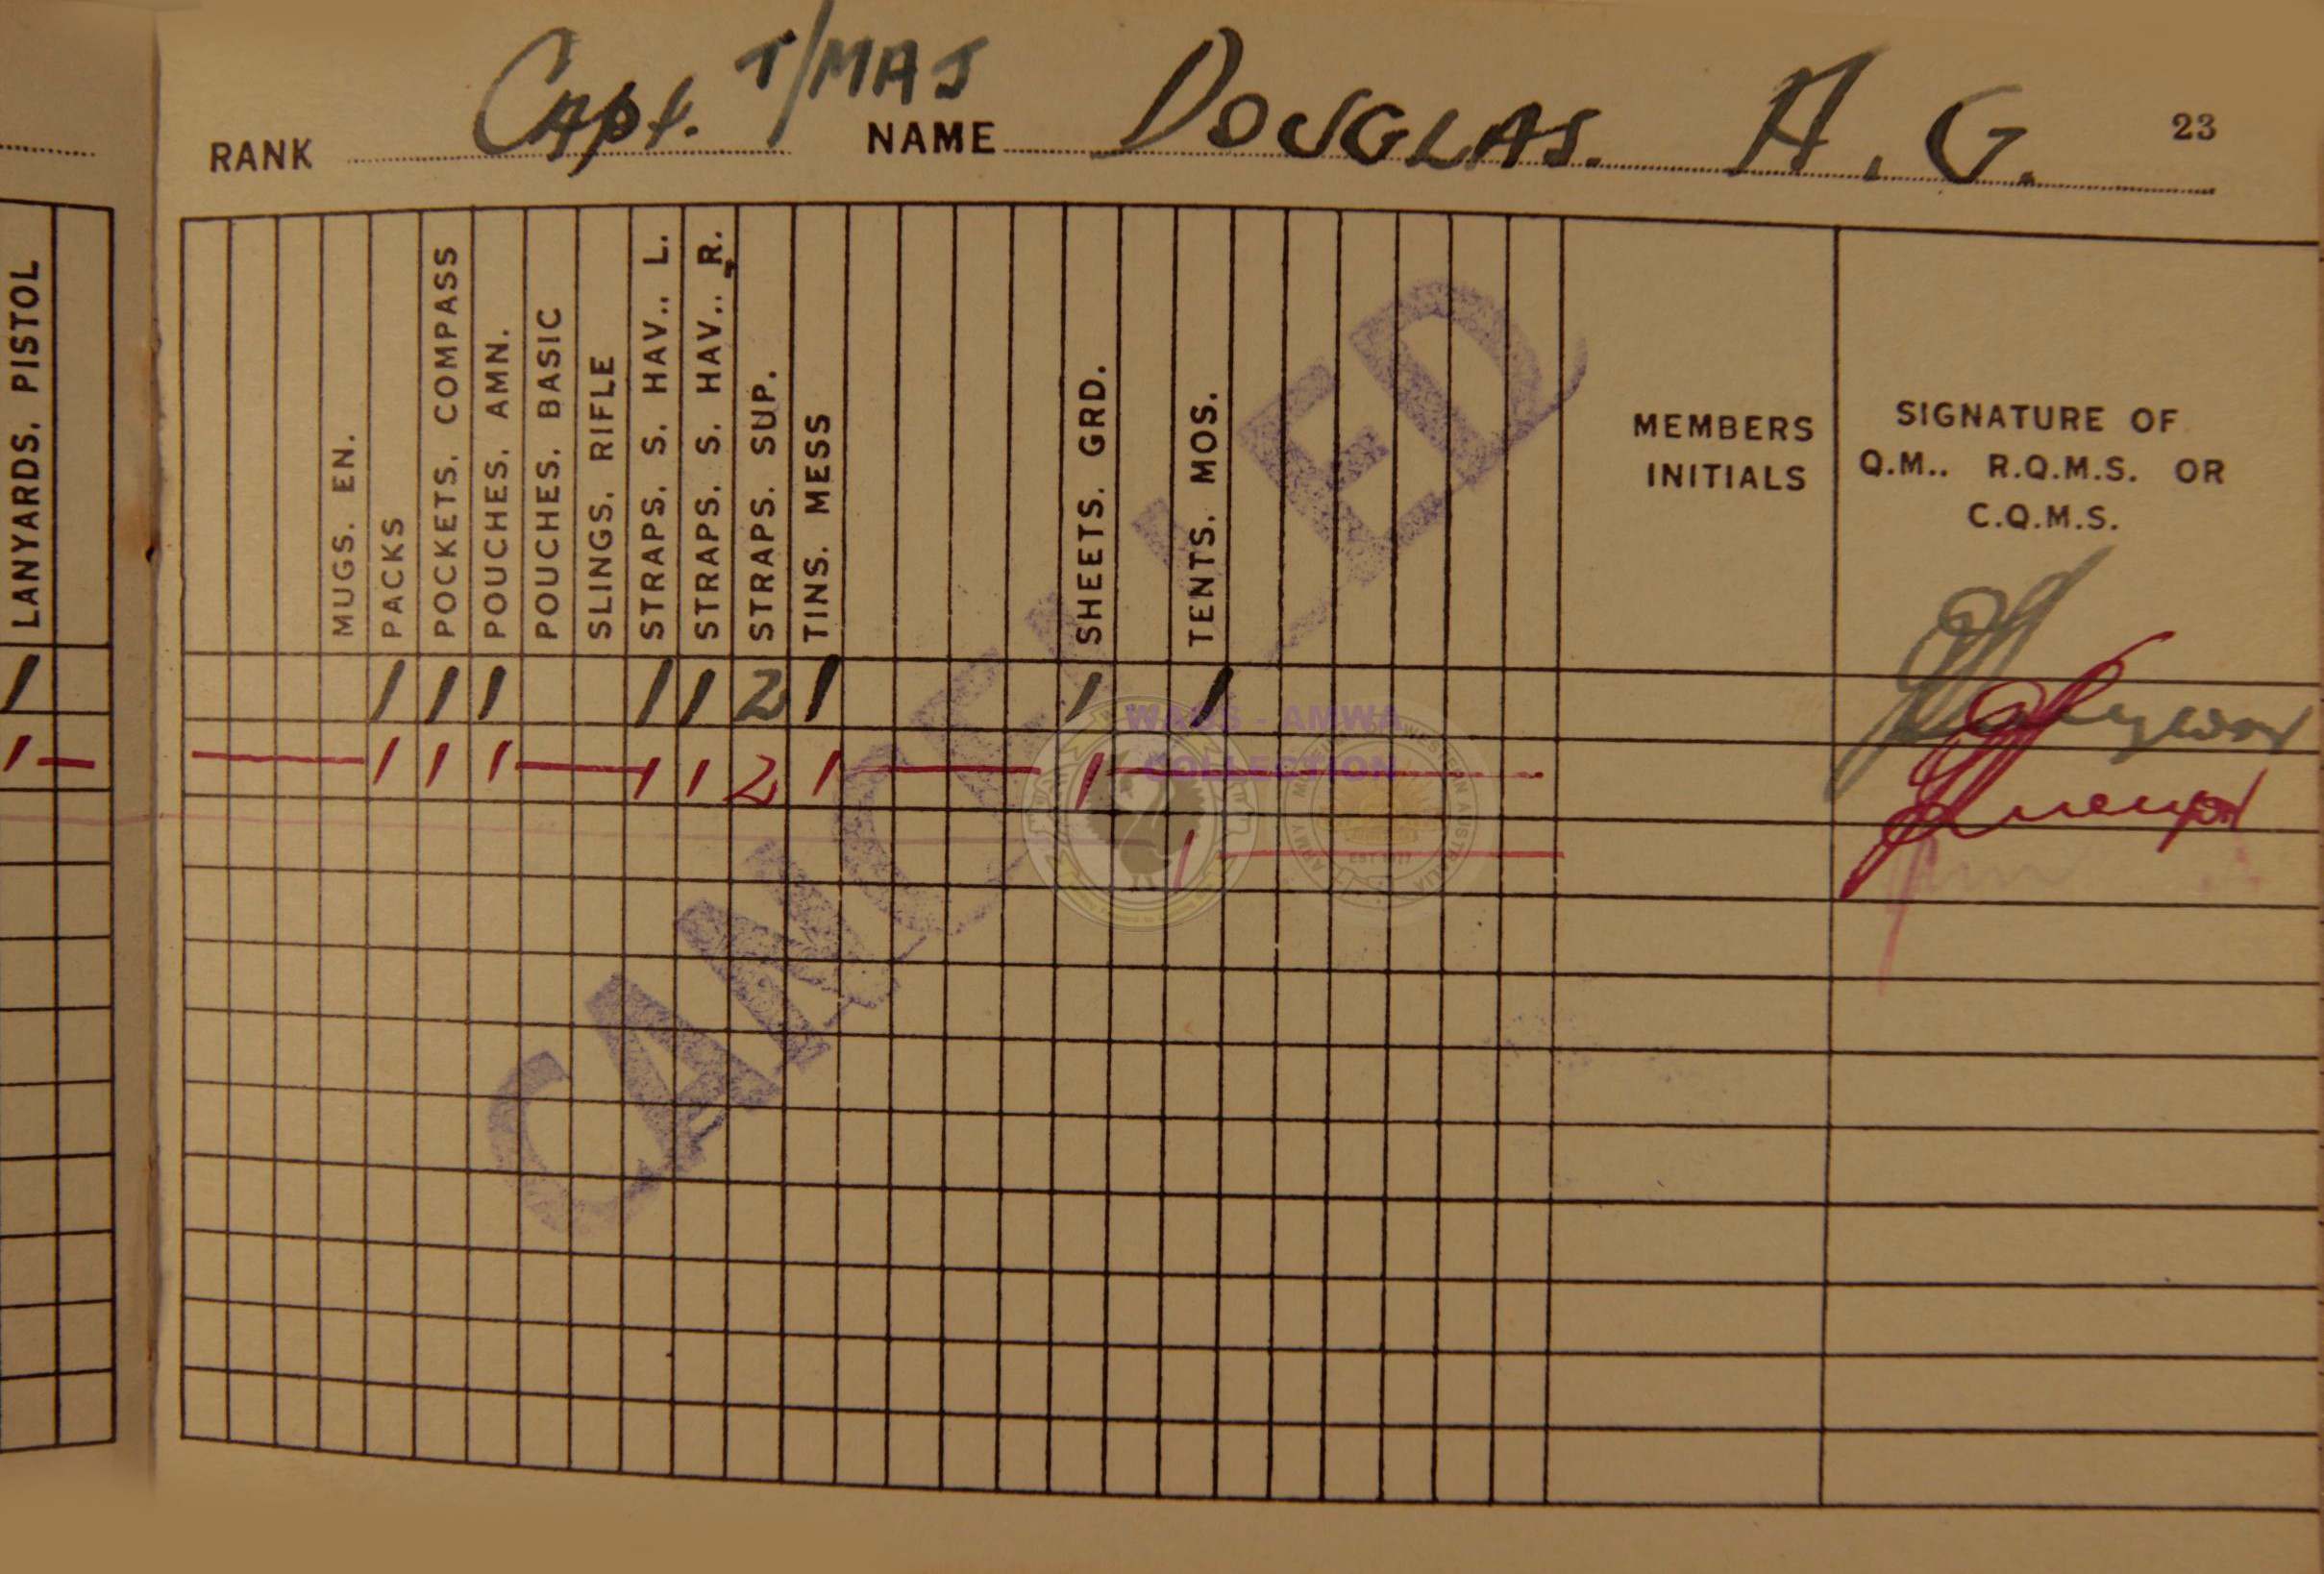 RANK Capt. T/MAJ NAME DOUGLAS. A. G. 23
LANYARDS. PISTOL
MUGS. EN.
PACKS
POCKETS. COMPASS
POUCHES. AMN.
POUCHES. BASIC
SLINGS. RIFLE
STRAPS. S. HAV.. L.
STRAPS. S. HAV.. R.
STRAPS. SUP.
TINS. MESS
SHEETS. GRD.
TENTS. MOS.
MEMBERS
INITIALS
SIGNATURE OF
Q.M.. R.Q.M.S. OR
C.Q.M.S.
1 1 1 1 1 1 2 1 1 1
1 — 1 1 1 1 1 2 1 1
1
CANCELLED
WAHS - AMWA
COLLECTION